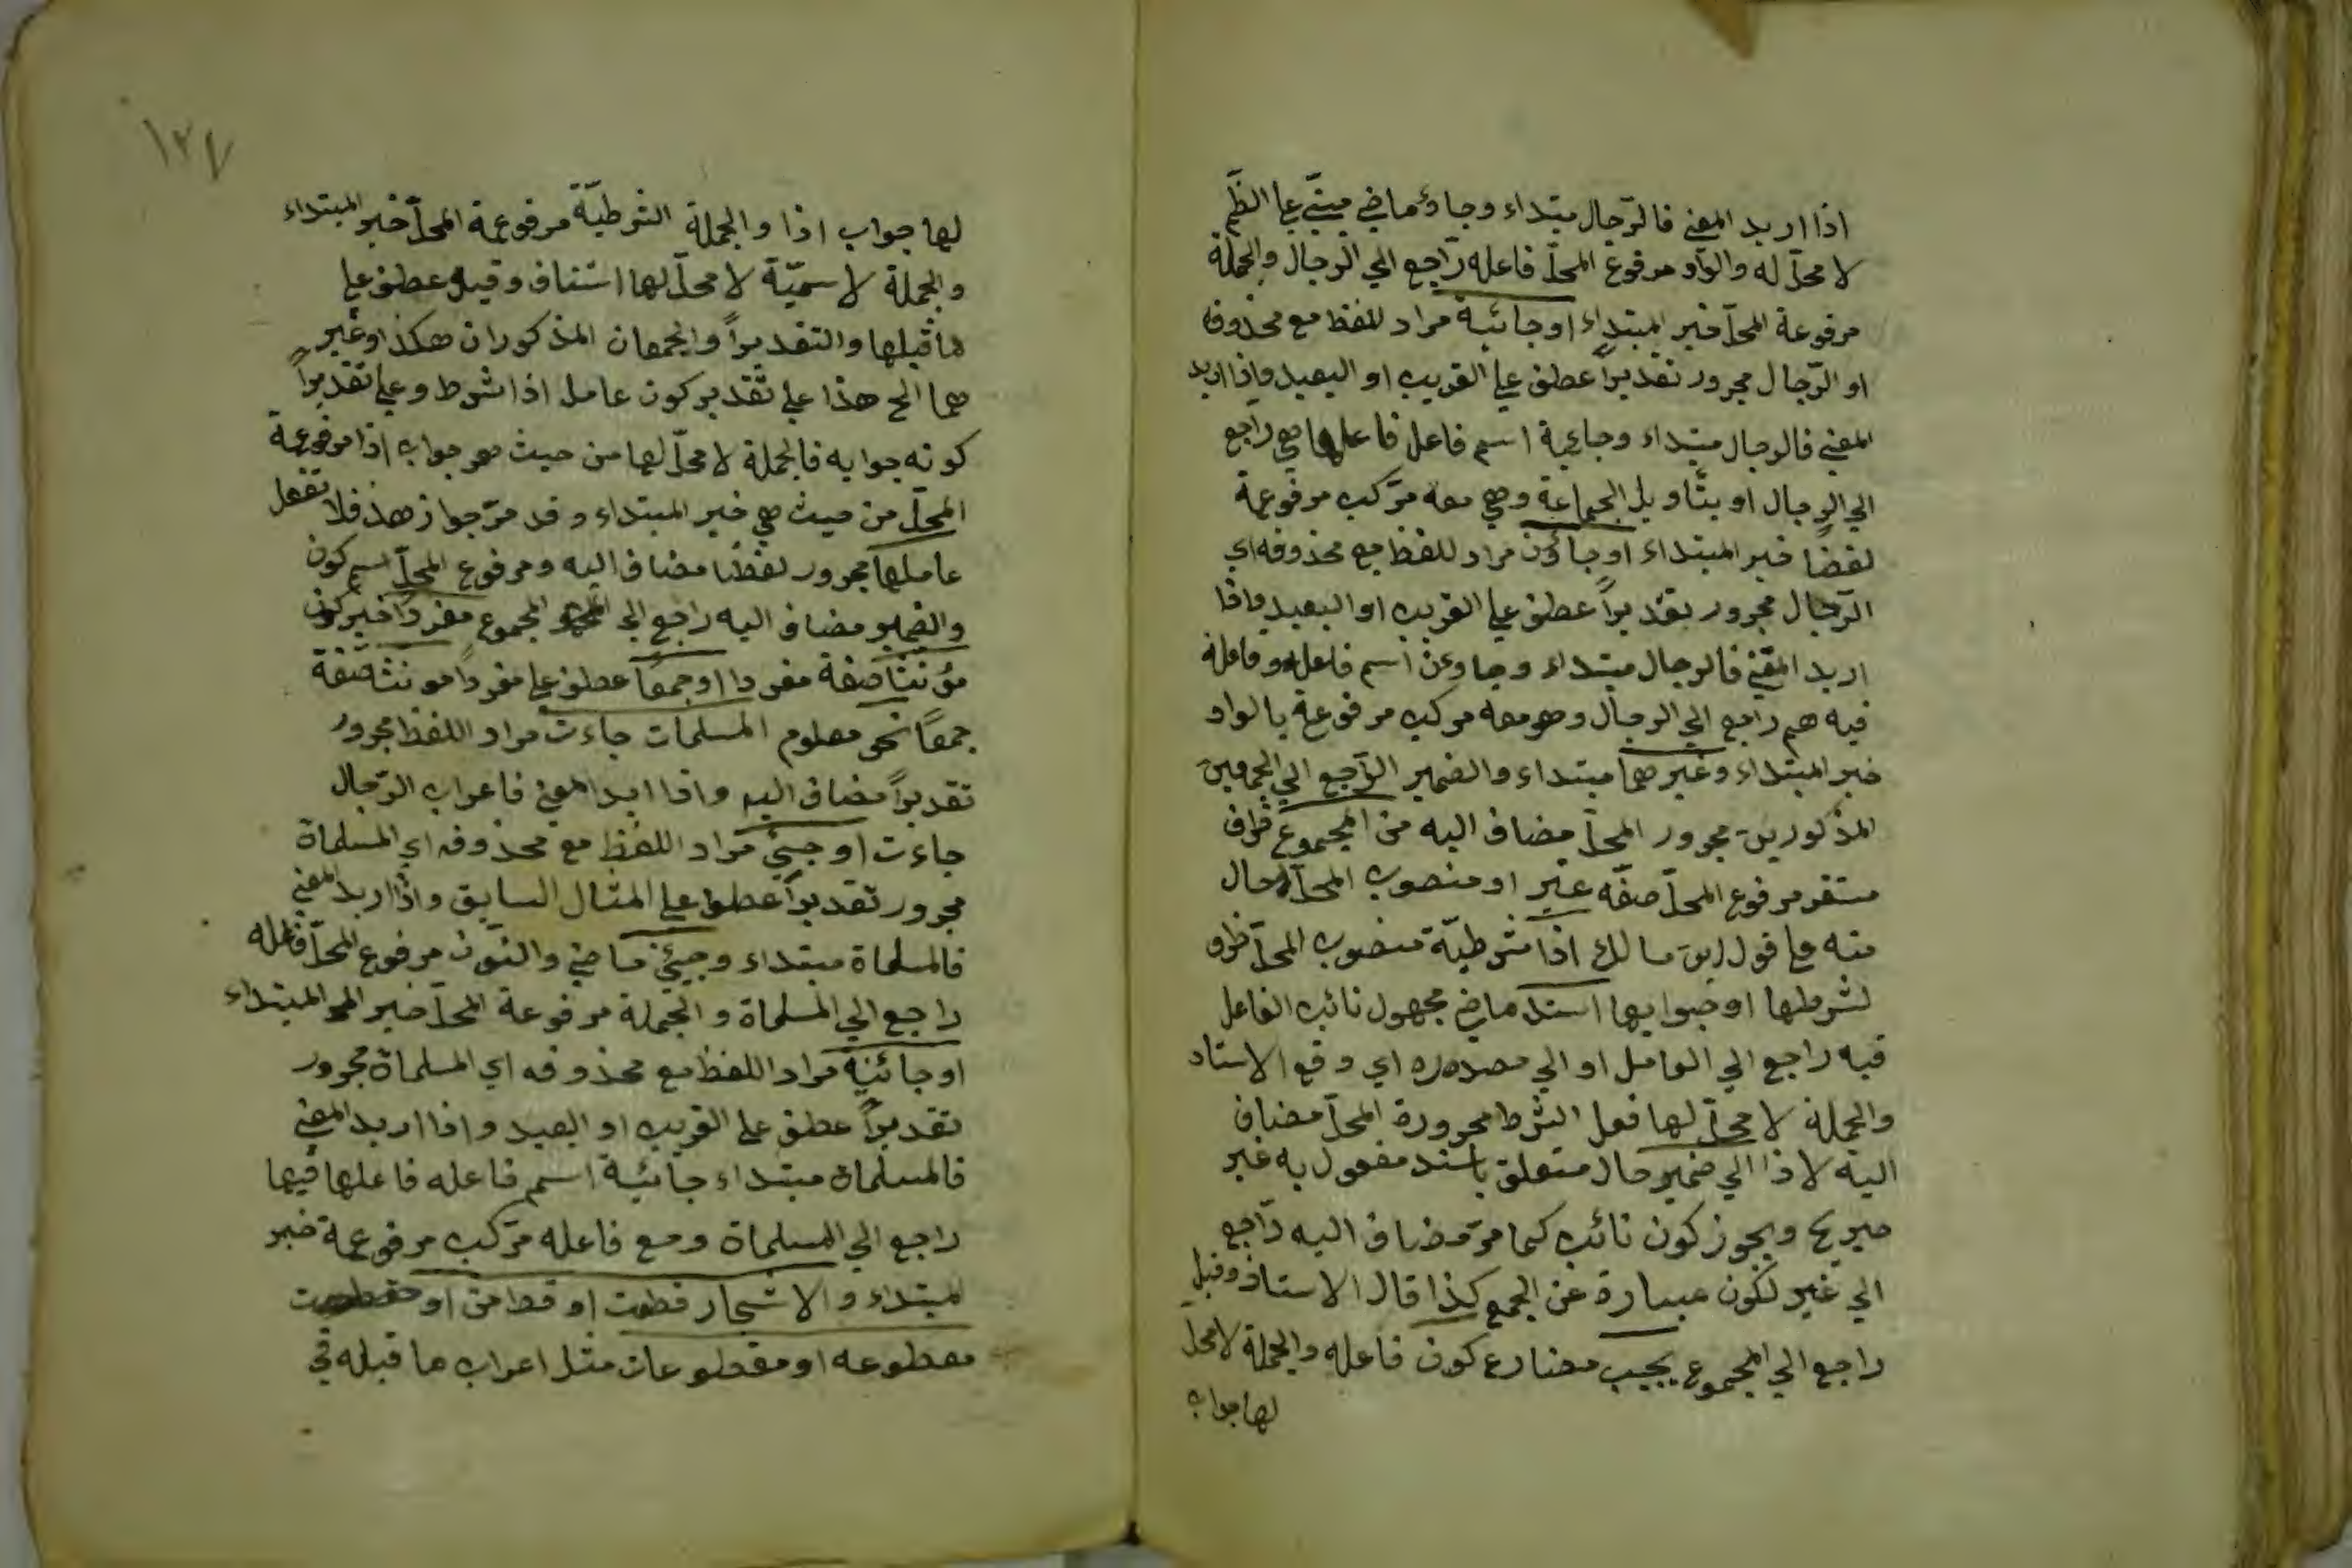 اذا اريد المعنى فالرّجال مبتداء وجاؤ ماضي مبنيّ على الضّم
لا محلّ له والواو مرفوع المحلّ فاعله راجع الي الرجال والجملة
مرفوعة المحلّ خبر المبتداء او جائية مراد للفظ مع محذوف
او الرّجال مجرور تقديراً عطف علي القريب او البعيد واذا اريد
المعني فالرجال مبتداء وجاءية اسم فاعل فاعلها هي راجع
الي الرجال او بتأويل الجماعة وهي معه مركب مرفوعة
لفضا خبر المبتداء او جاؤن مراد للفظ مع محذوفه اي
الرّجال مجرور تقديراً عطف علي القريب او البعيد واذا
اريد المعني فالرجال مبتداء وجاوءن اسم فاعل وفاعله
فيه هم راجع الي الرجال وهو معه مركب مرفوعة بالواو
خبر المبتداء وغير هما مبتداء والضمير الرّاجع الي الجمعين
المذكورين مجرور المحلّ مضاف اليه من المجموع ظرف
مستقر مرفوع المحلّ صفة غير او منصوب المحلّ حال
منه علي قول ابن مالك اذا شرطيّة منصوب المحلّ ظرف
لشرطها او جوابها اسند ماضي مجهول نائب الفاعل
فيه راجع الي العامل او الي مصدره اي وقع الاسناد
والجملة لا محلّ لها فعل الشرط مجرورة المحلّ مضاف
اليه لاذا الي ضمير حال متعلق باسند مفعول به غير
صريح ويجوز كون نائب كما مرّ مضاف اليه راجع
الي غير لكون عبارة عن الجمع كذا قال الاستاذ وقيل
راجع الي المجموع يجيب مضارع كون فاعله والجملة لا محل
لها جواب
١٢٧
لها جواب اذا والجملة الشرطيّة مرفوعة المحلّ خبر المبتداء
والجملة لاسميّة لا محلّ لها استناف وقيل عطف علي
ما قبلها والتقديراً والجمعان المذكوران هكذا وغير
هما الخ هذا علي تقدير كون عامل اذا شرط وعلي تقديراً
كونه جوابه فالجملة لا محلّ لها من حيث هو جواب اذا مرفوعة
المحلّ من حيث هي خبر المبتداء وقد مرّ جواز هذا فلا تغفل
عاملها مجرور لفظا مضاف اليه ومرفوع المحلّ اسم كون
والضمير مضاف اليه راجع الي المجموع مفرداً خبر كون
مؤنثا صفة مفردا او جمعا عطف علي مفرداً مونثا صفة
جمعاً نحو معلوم المسلمات جاءت مراد اللفظ مجرور
تقديراً مضاف اليه واذا ايد المعني فاعراب الرّجال
جاءت او جيئ مراد اللفظ مع محذوفه اي المسلماة
مجرور تقديراً عطف علي المثال السابق واذا اريد المعني
فالمسلماة مبتداء وجيئ ماضي والنون مرفوع المحلّ فاعله
راجع الي المسلماة والجملة مرفوعة المحلّ خبر المبتداء
او جائية مراد اللفظ مع محذوفه اي المسلماة مجرور
تقديراً عطف علي القريب او البعيد واذا اريد المعني
فالمسلماة مبتداء جائية اسم فاعله فاعلها فيها
راجع الي المسلماة ومع فاعله مركب مرفوعة خبر
المبتداء والاشجار قطعت او قطعن او
مقطوعه او مقطوعات مثل اعراب ما قبله في